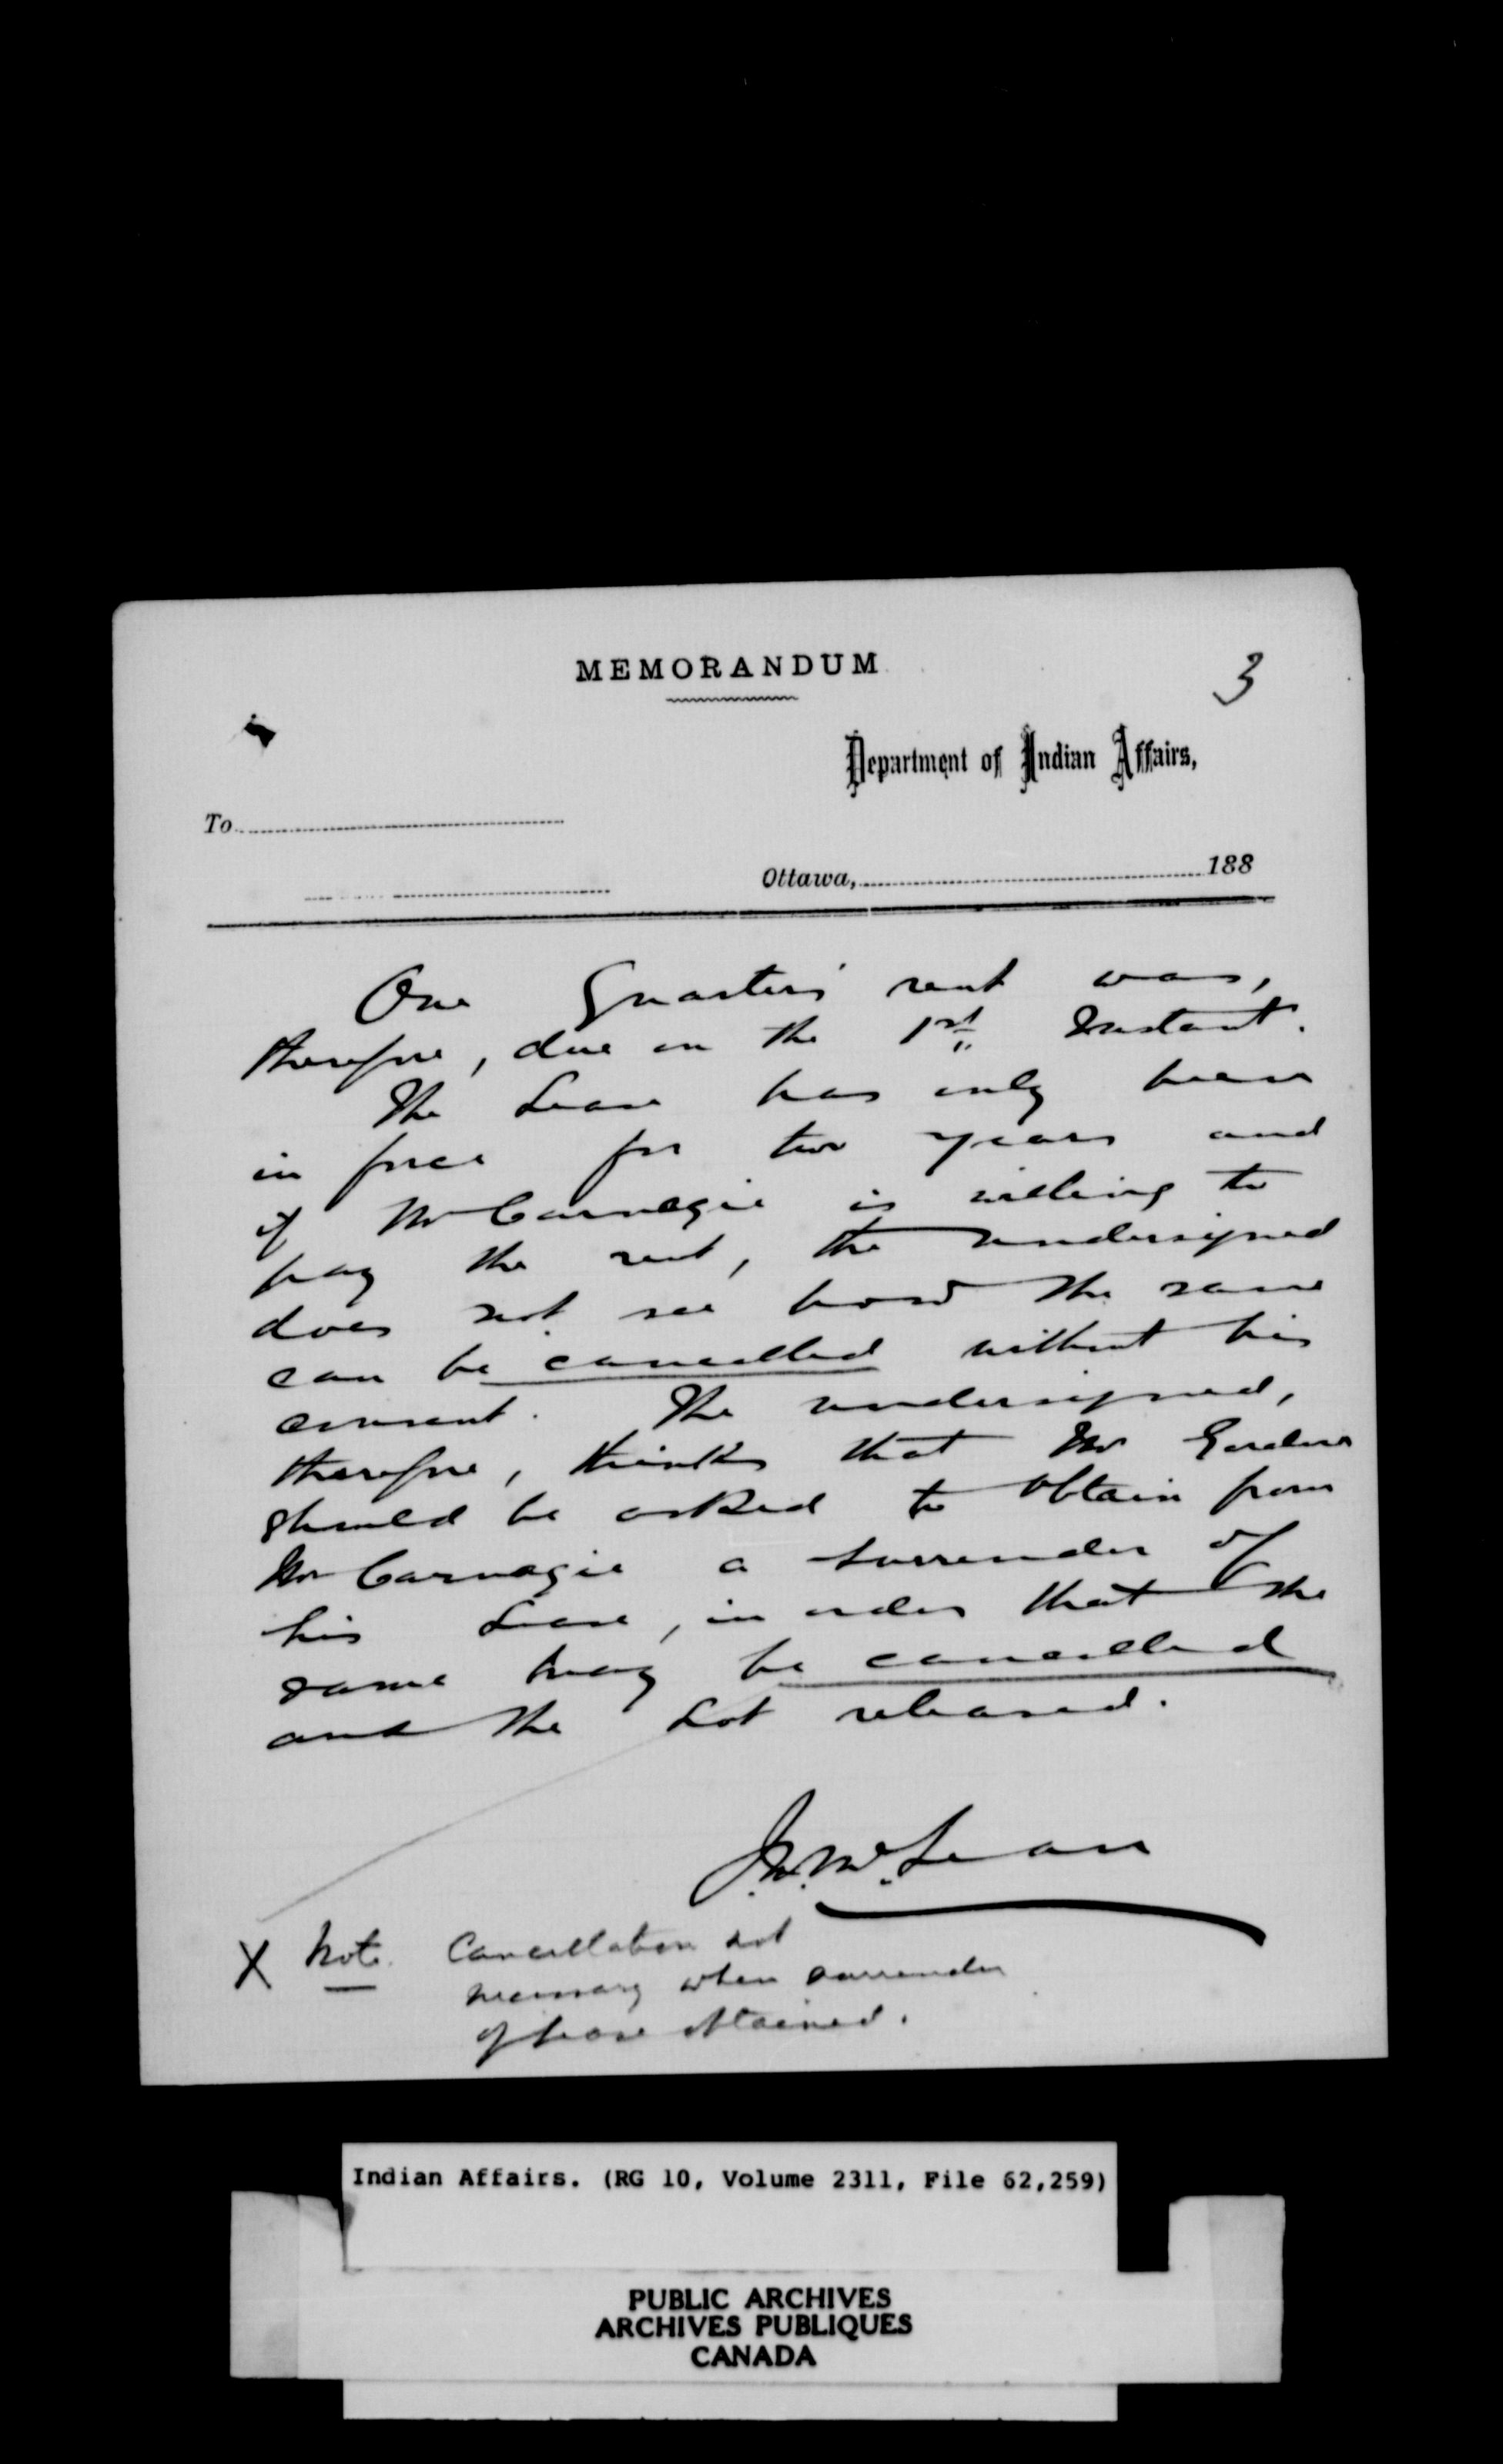 MEMORANDUM
3
Department of Indian Affairs,
To
Ottawa, 188
One Quarters' rent was,
therefore, due on the 1st Instant.
The Lease has only been
in force for two years and
if Mr Carnegie is willing to
pay the rent, the undersigned
does not see how the same
can be cancelled without his
consent. The undersigned,
therefore, thinks that Mr
should be asked to obtain from
Mr Carnegie a surrender of
his Lease, in order that the
same may be cancelled
and the Lot released.
J.D. McLean
X Note. Cancellation not
necessary when surrender
of lease obtained.
Indian Affairs. (RG 10, Volume 2311, File 62,259)
PUBLIC ARCHIVES
ARCHIVES PUBLIQUES
CANADA